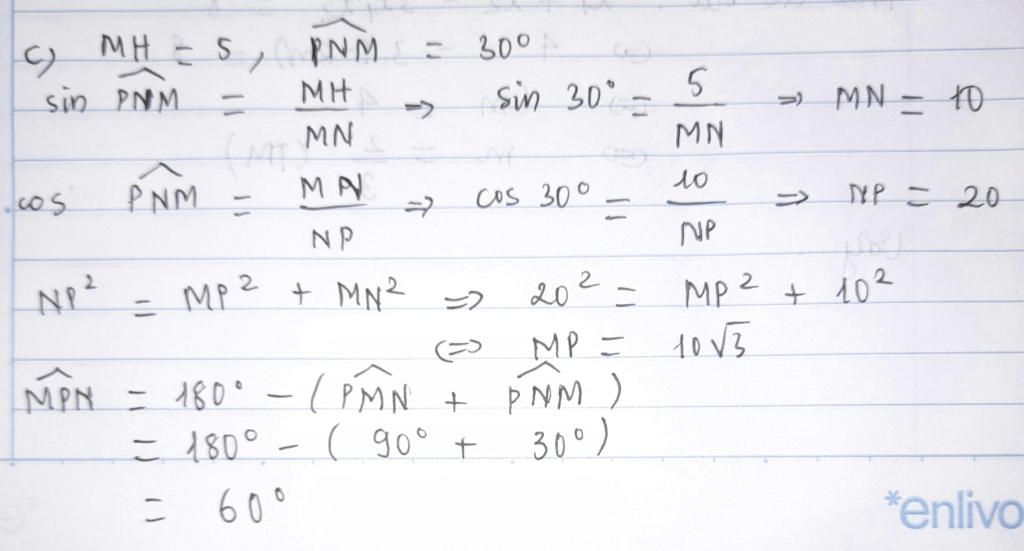 c) MH = 5, \widehat{PNM} = 30°
sin \widehat{PNM} = \frac{MH}{MN} => sin 30° = \frac{5}{MN} => MN = 10
cos \widehat{PNM} = \frac{MN}{NP} => cos 30° = \frac{10}{NP} => NP = 20
NP² = MP² + MN² => 20² = MP² + 10²
<=> MP = 10√3
\widehat{MPN} = 180° - (\widehat{PMN} + \widehat{PNM})
= 180° - (90° + 30°)
= 60°
*enlivo